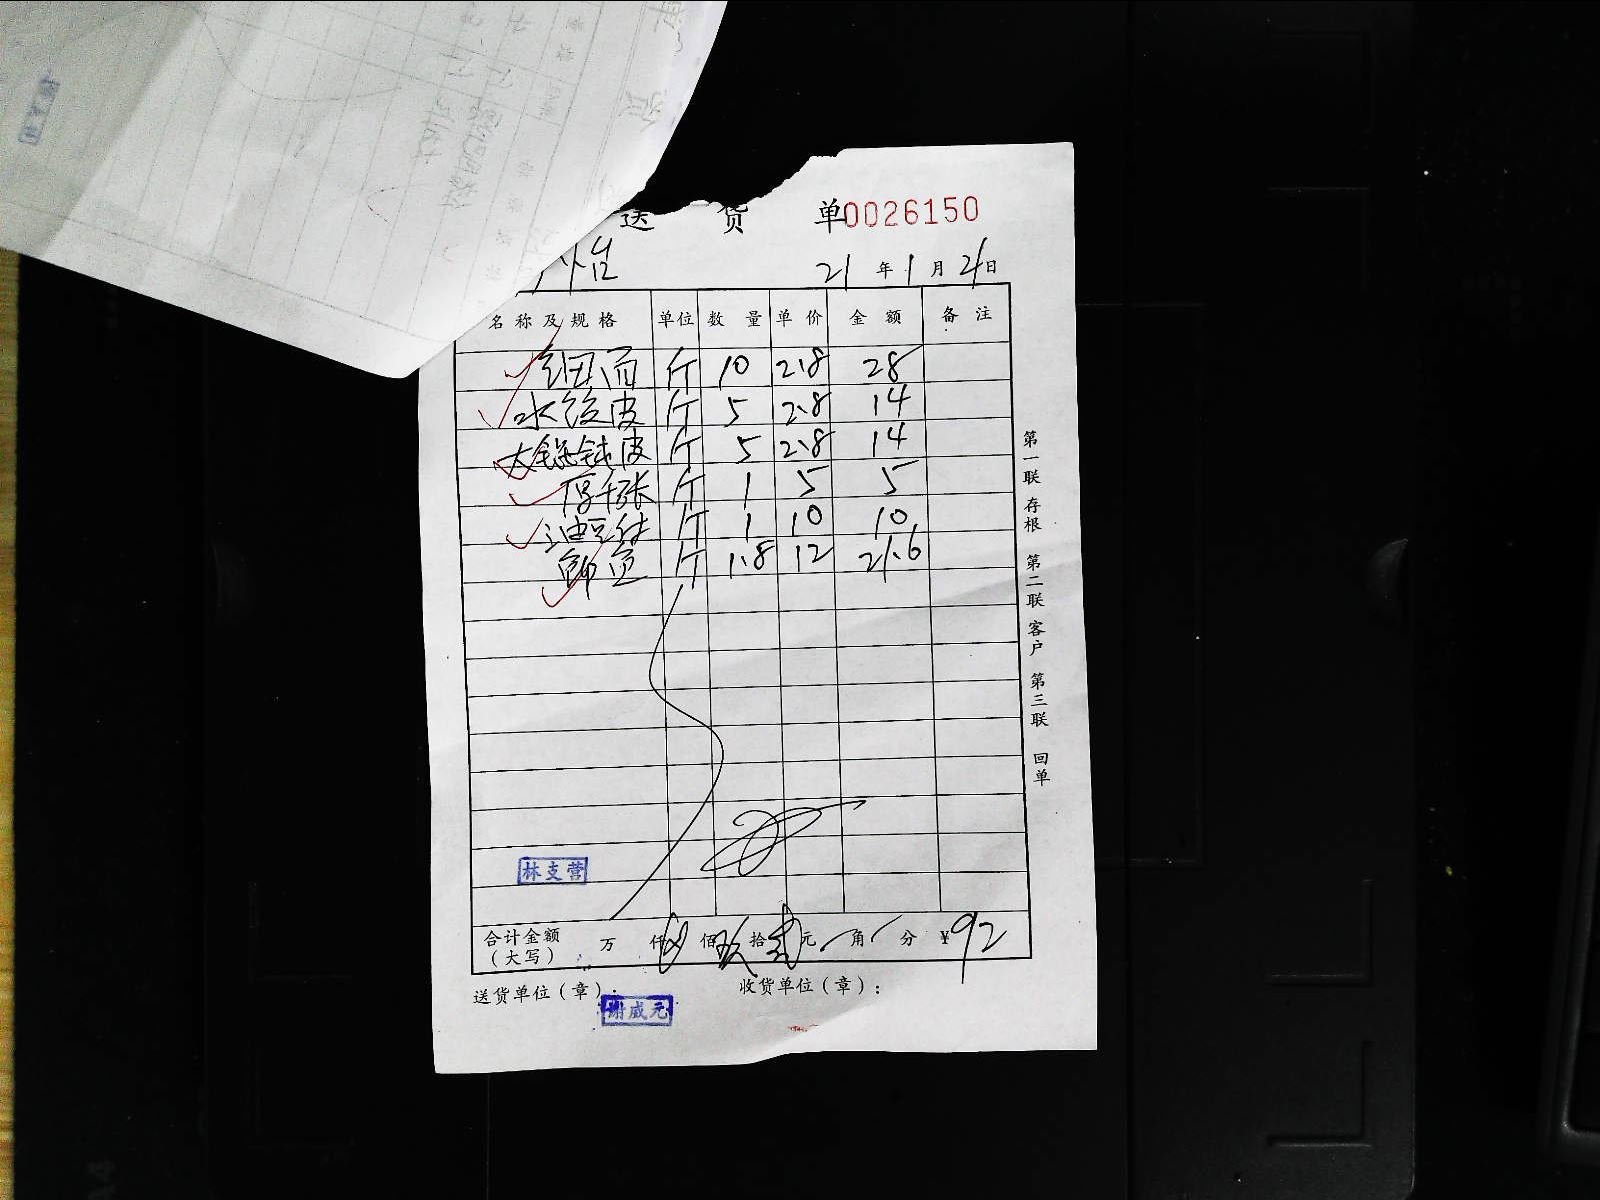 送 货 单 0026150
怡
21 年 1 月 21 日
名 称 及 规 格 单位 数 量 单 价 金 额 备 注
细面 斤 10 2.8 28
水饺皮 斤 5 2.8 14
大馄饨皮 斤 5 2.8 14
厚千张 斤 1 5 5
油豆 斤 1 10 10
斤 1.8 12 21.6
林支营
合计金额 万 仟 佰 玖 拾 贰 元 角 分 ¥92
（大写）
送货单位（章）： 收货单位（章）：
谢威元
第一联 存根 第二联 客户 第三联 回单